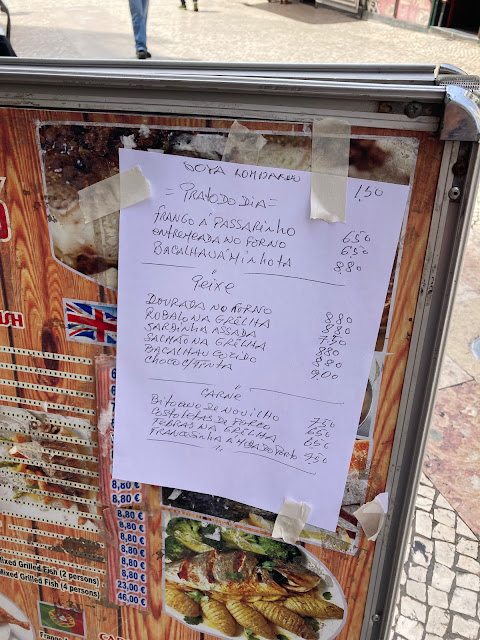 SOPA LOMBARDO 1,50
= PRATO DO DIA =
FRANGO Á PASSARINHO 6,50
ENTREMEADA NO FORNO 6,50
BACALHAU Á MINHOTA 8,80
PEIXE
DOURADA NO FORNO 8,80
ROBALO NA GRELHA 8,80
SARDINHA ASSADA 7,50
SALMÃO NA GRELHA 8,80
BACALHAU COZIDO 8,80
CHOCO C/TINTA 9,00
CARNE
BITOQUE DE NOVILHO 7,50
COSTELETAS DE PORCO 6,50
FEBRAS NA GRELHA 6,50
FRANCESINHA Á MODA DO PORTO 7,50
SH
8,80
8,80 €
8,80 €
8,80 €
8,80 €
8,80 €
8,80 €
Mixed Grilled Fish (2 persons) 23,00 €
Mixed Grilled Fish (4 persons) 46,00 €